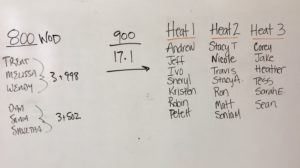 800 WOD
TREAT
MELISSA
WENDY
3+998
DAN
3+502
900
17.1
Heat 1
Andrew
Jeff
Ivo
Sheryl
Kristen
Robin
Heat 2
Stacy T
Nicole
Travis
Stacy A.
Ron
Matt
Heat 3
Corey
Jake
Heather
Tess
Sarah E
Sean